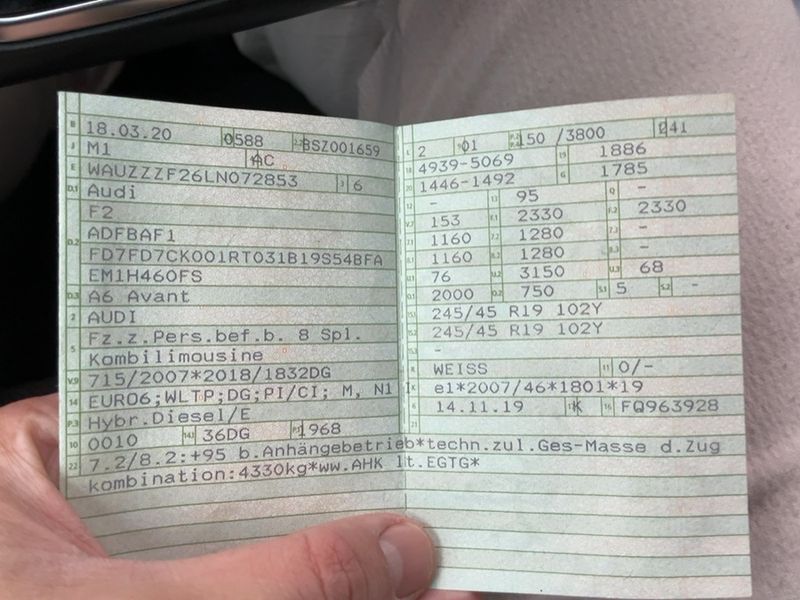 B 18.03.20 0588 BSZ001659
J M1 AC
E WAUZZZF26LN072853 3 6
D.1 Audi
F2
D.2 ADFBAF1
FD7FD7CK001RT031B19S54BFA
EM1H460FS
D.3 A6 Avant
2 AUDI
5 Fz.z.Pers.bef.b. 8 Spl.
Kombilimousine
V.9 715/2007*2018/1832DG
14 EURO6;WLTP;DG;PI/CI; M, N1 I
P.3 Hybr.Diesel/E
10 0010 14.1 36DG P.1 1968
22 7.2/8.2:+95 b.Anhängebetrieb*techn.zul.Ges-Masse d.Zug
kombination:4330kg*ww.AHK lt.EGTG*
L 2 9 01 150 /3800 041
18 4939-5069 19 1886
20 1446-1492 G 1785
12 - 13 95 Q -
V.7 153 F.1 2330 F.2 2330
7.1 1160 7.2 1280 7.3 -
8.1 1160 8.2 1280 8.3 -
U.1 76 U.2 3150 U.3 68
O.1 2000 O.2 750 S.1 5 S.2 -
15.1 245/45 R19 102Y
15.2 245/45 R19 102Y
15.3 -
R WEISS 11 0/-
K e1*2007/46*1801*19
6 14.11.19 17 K 16 FQ963928
21